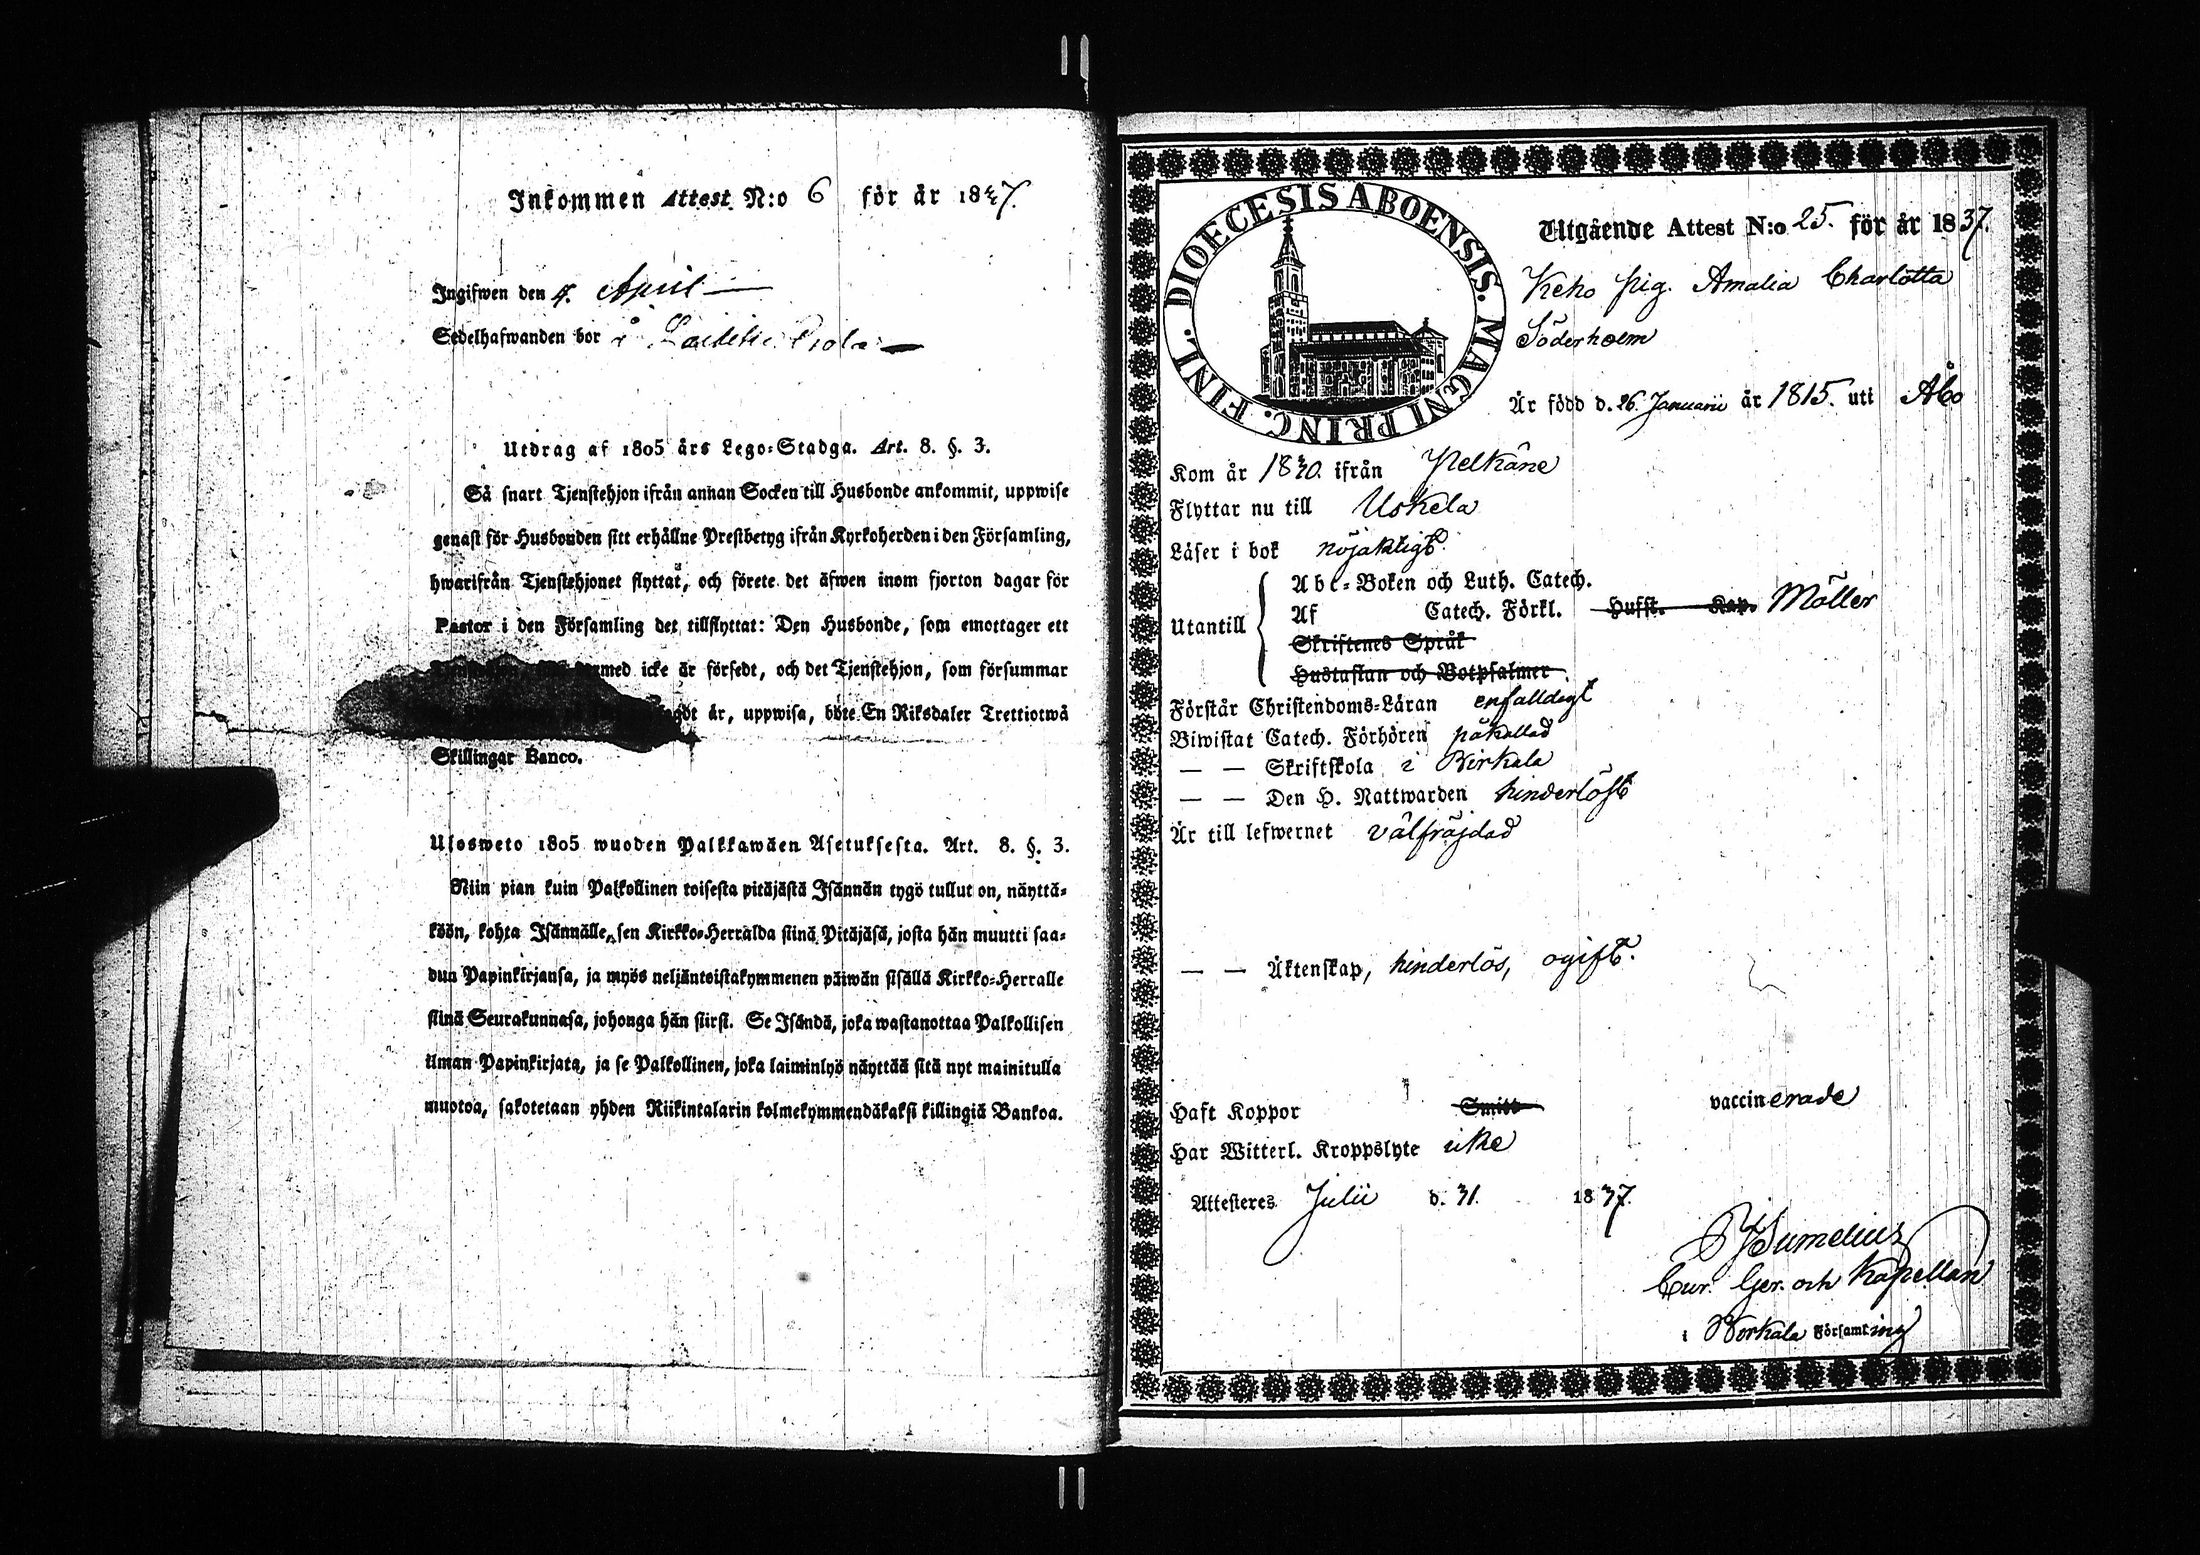 Inkommen Attest N:o 6 för år 1837.
Ingifwen den 4. April
Sedelhafwanden bor å
Utdrag af 1805 års Lego-Stadga. Art. 8. §. 3.
Så snart Tjenstehjon ifrån annan Socken till Husbonde ankommit, uppwise
genast för Husbonden sitt erhållne Prestbetyg ifrån Kyrkoherden i den Församling,
hwarifrån Tjenstehjonet flyttat, och förete det äfwen inom fjorton dagar för
Pastor i den Församling det tillflyttat: Den Husbonde, som emottager ett
med icke är försedt, och det Tjenstehjon, som försummar
är, uppwisa, böte En Riksdaler Trettiotwå
Skillingar Banco.
Ulosweto 1805 wuoden Palkkawäen Asetuksesta. Art. 8. §. 3.
Niin pian kuin Palkollinen toisesta pitäjästä Isännän tygö tullut on, näyttä-
köön, kohta Isännälle, sen Kirkko-Herralda siinä Pitäjäsä, josta hän muutti saa-
dun Papinkirjansa, ja myös neljäntoistakymmenen päiwän sisällä Kirkko-Herralle
siinä Seurakunnasa, johonga hän siirsi. Se Isändä, joka wastanottaa Palkollisen
ilman Papinkirjata, ja se Palkollinen, joka laiminlyö näyttää sitä nyt mainitulla
muotoa, sakotetaan yhden Riikintalarin kolmekymmendäkaksi killingiä Bankoa.
DIOECESIS ABOENSIS. MAGNI PRINC. FINL.
Utgående Attest N:o 25. för år 1837.
Keho pig. Amalia Charlotta
Söderholm
Är född d. 26. Januarii år 1815. uti Åbo
Kom år 1830. ifrån Pelkäne
Flyttar nu till Uskela
Läser i bok nöjaktigt.
Utantill
Abc-Boken och Luth. Catech.
Af Catech. Förkl. Husst. Kap. Möller
Skriftenes Språk
Hustaflan och Botpsalmer.
Förstår Christendoms-Läran enfalldigt
Biwistat Catech. Förhören påkallad
— — Skriftskola i Birkala
— — Den H. Nattwarden hinderlöst
Är till lefwernet välfräjdad
— — Äktenskap, hinderlös, ogift.
Haft Koppor Smitt vaccinerade
Har Witterl. Kroppslyte icke
Attesteres Julii d. 31. 1837.
Sumelius
Cur. Ger. och Kapellan
i Birkala Församling